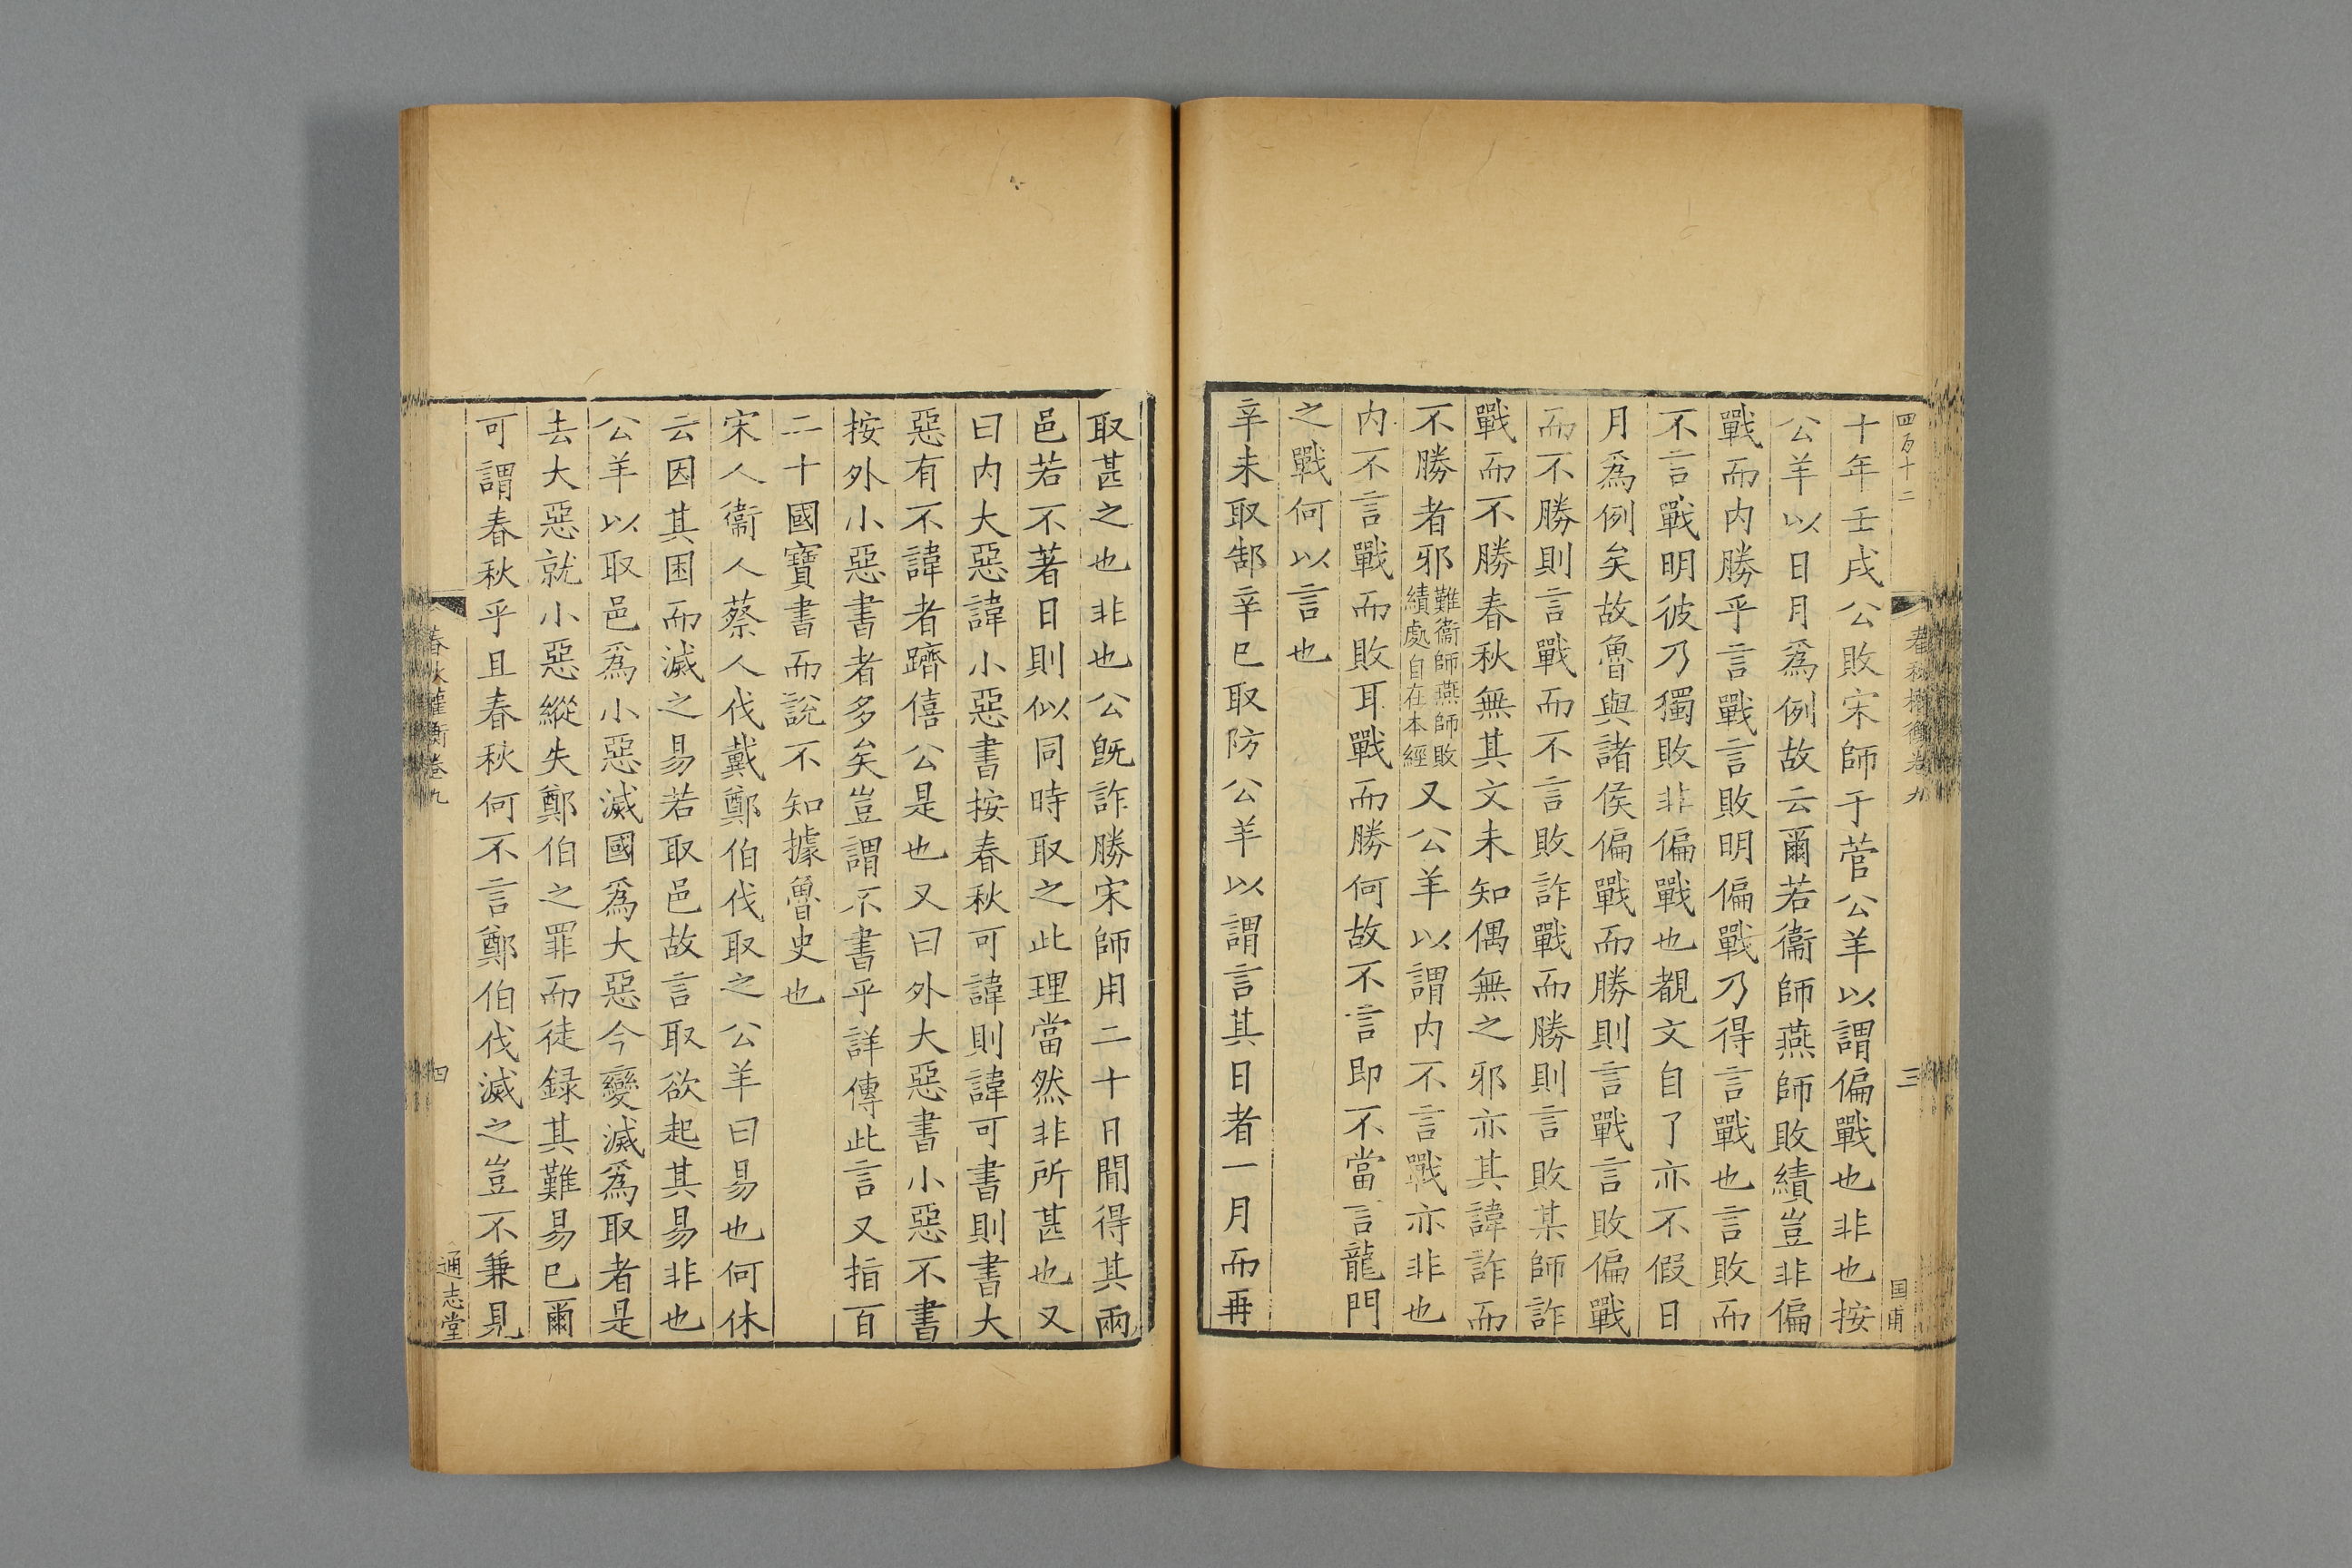 四百十二
春秋權衡卷九
三
国甫
十年壬戌公敗宋師于菅公羊以謂偏戰也非也按
公羊以日月爲例故云爾若衞師燕師敗績豈非偏
戰而内勝乎言戰言敗明偏戰乃得言戰也言敗而
不言戰明彼乃獨敗非偏戰也覩文自了亦不假日
月爲例矣故魯與諸侯偏戰而勝則言戰言敗偏戰
而不勝則言戰而不言敗詐戰而勝則言敗某師詐
戰而不勝春秋無其文未知偶無之邪亦其諱詐而
不勝者邪難衞師燕師敗績處自在本經又公羊以謂内不言戰亦非也
内不言戰而敗耳戰而勝何故不言即不當言龍門
之戰何以言也
辛未取郜辛巳取防公羊以謂言其日者一月而再
取甚之也非也公旣詐勝宋師用二十日間得其兩
邑若不著日則似同時取之此理當然非所甚也又
曰内大惡諱小惡書按春秋可諱則諱可書則書大
惡有不諱者躋僖公是也又曰外大惡書小惡不書
按外小惡書者多矣豈謂不書乎詳傳此言又指百
二十國寶書而說不知據魯史也
宋人衞人蔡人伐戴鄭伯伐取之公羊曰易也何休
云因其困而滅之易若取邑故言取欲起其易非也
公羊以取邑爲小惡滅國爲大惡今變滅爲取者是
去大惡就小惡縱失鄭伯之罪而徒録其難易巳爾
可謂春秋乎且春秋何不言鄭伯伐滅之豈不兼見
春秋權衡卷九
四
通志堂